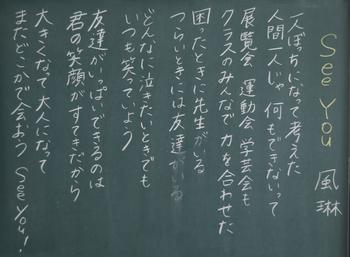 See You
風琳
一人ぼっちになって考えた
人間一人じゃ何もできないって
展覧会 運動会 学芸会も
クラスのみんなで力を合わせた
困ったときに先生がいる
つらいときには友達がいる
どんなに泣きたいときでも
いつも笑っていよう
友達がいっぱいできるのは
君の笑顔がすてきだから
大きくなって大人になって
またどこかで会おう See You!